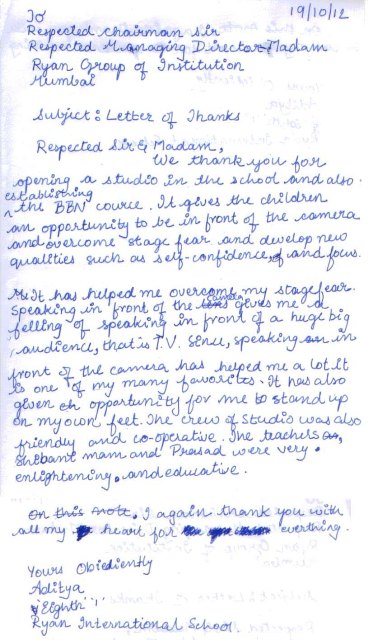 19/10/12
To
Respected chairman sir
Respected Managing Director Madam
Ryan Group of Institution
Mumbai
Subject: Letter of Thanks
Respected Sir & Madam,
We thank you for
opening a studio in the school and also
establishing
the BBN cource. It gives the children
an opportunity to be in front of the camera
and overcome stage fear and develop new
qualities such as self-confidence, and focus.
It has helped me overcome my stage fear.
Speaking in front of the camera gives me a
felling of speaking in front of a huge big
audience, that is T.V. Since, speaking in
front of the camera has helped me a lot it
is one of my many favorites. It has also
given opportunity for me to stand up
on my own feet. The crew of Studio was also
friendly and co-operative. The teachers
mam and Prasad were very
enlightening and educative.
On this note. I again thank you with
all my heart for everthing.
Yours Obiediently
Aditya
Eighth 'I'
Ryan International School